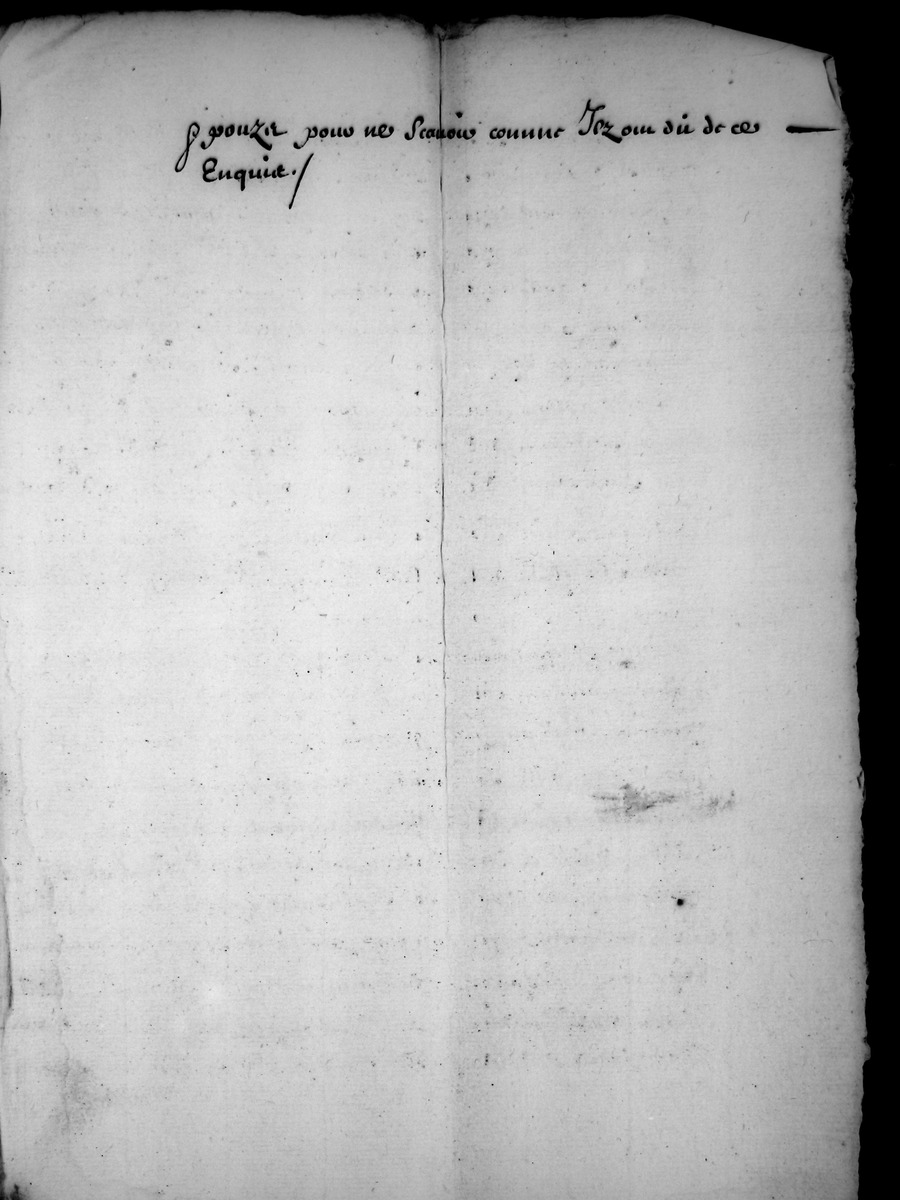 Epouze pour ne Scauoir comme Ilz ont dit de ce
Enquis./